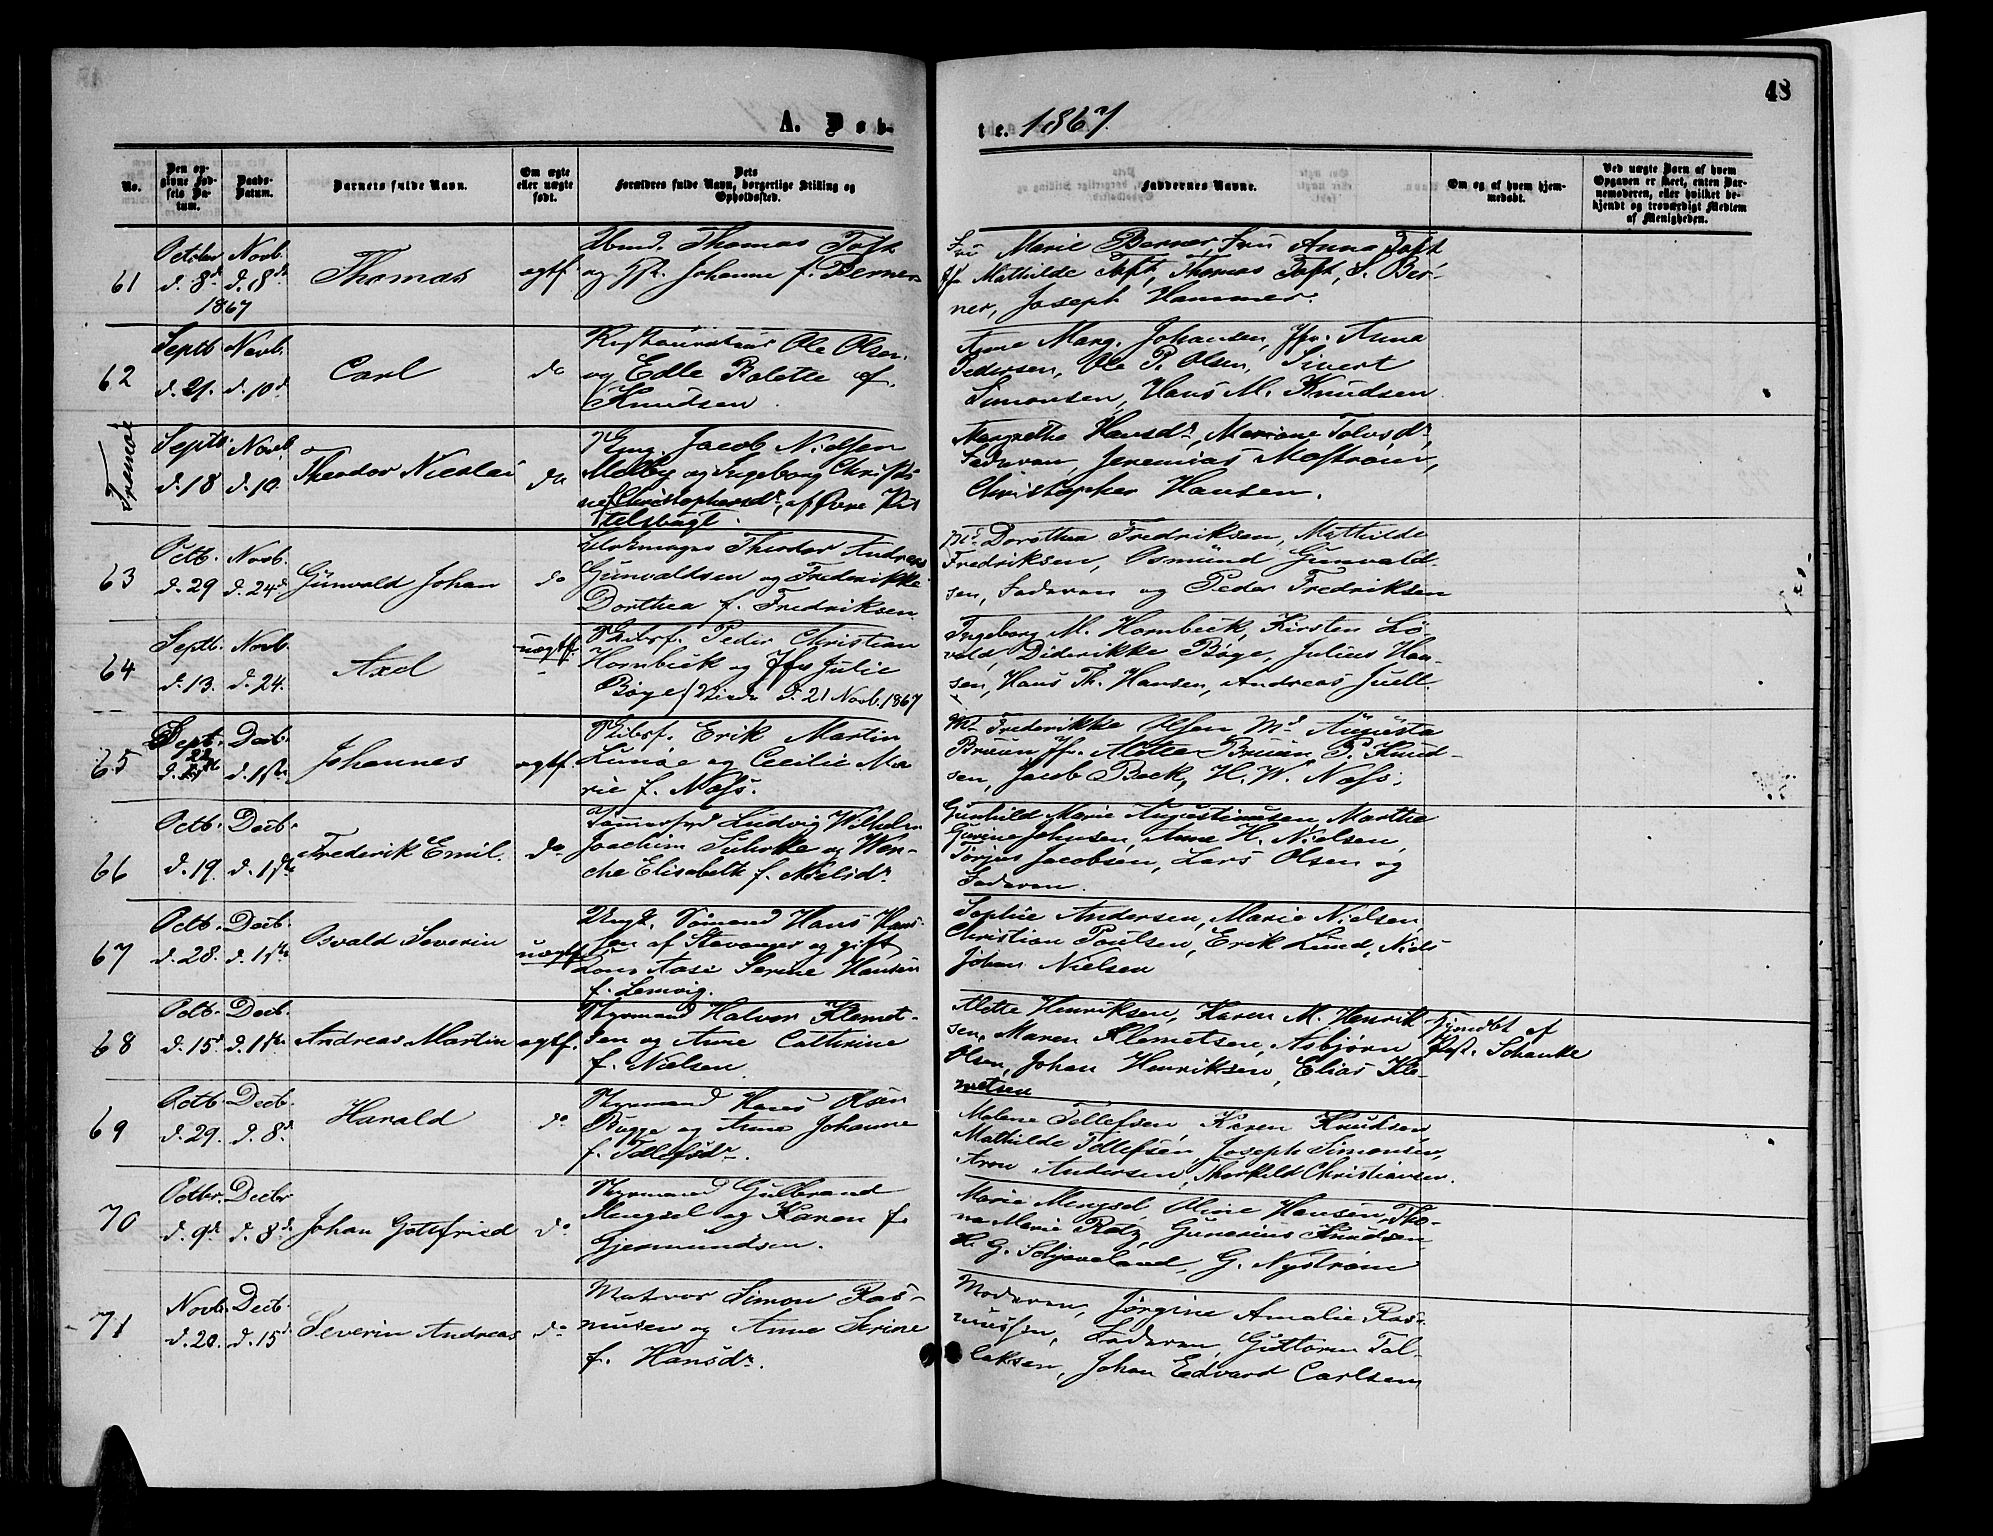 48
A. Døb-
te. 1867
No.
Den opgivne Fødsels Datum.
Daabs-Datum.
Barnets fulde Navn.
Om ægte eller uægte født.
Dets Forældres fulde Navn, borgerlige Stilling og Opholdssted.
Faddernes Navne.
Om og af hvem hjemmedøbt.
Ved uægte Børn af hvem Opgaven er skeet, enten Barnemoderen, eller hvilket bekjendt og troværdigt Medlem af Menigheden.
61
October d. 8d 1867
Novb. d. 18d
Thomas
ægtf.
Thomas Toft
og Johanne f. Berner
Fru Marie Berner, Fru Anna Toft
Mathilde Toft, Thomas Toft, S. Ber-
ner, Joseph Hammer.
62
Septb. d. 21.
Novb. d. 10d
Carl
do
Restauratør Ole Olsen
og Edle Bolette f.
Knudsen.
Anne Marg. Johansen, Jfr. Anna
Pedersen, Ole P. Olsen, Sivert
Simonsen, Hans M. Knudsen
Tromøe
Septb. d. 18
Novb. d. 10
Theodor Nicolai
do
Jacob Nielsen
Melby og Ingeborg Christi-
ne Christophersdr, af Øvre
Margrethe Hansdr, Mariane Tolvsdr,
Faderen, Jeremias Mostrøm,
Christopher Hansen.
63
Octb. d. 29
Novb. d. 24d
Gunvald Johan
do
Theodor Andreas
Gunvaldsen og Frederikke
Dorthea f. Fredriksen
Dorothea Fredriksen, Mathilde
Fredriksen, Osmund Gunvald-
sen, Faderen og Peder Fredriksen
64
Septb. d. 13.
Novb. d. 24.
Axel
uægtf.
Skibsf. Peder Christian
Hornbeck og Jfr Julie
Bøge d. 21 Novb. 1867
Ingeborg M. Hornbeck, Kirsten Lø-
vold, Diderikke Bøge, Julius Han-
sen, Hans Th. Hansen, Andreas Juell.
65
Sept. d. 22
Decb. d. 1ste
Johannes
ægtf.
Skibsf. Erik Martin
Lunøe og Cecilie Ma-
rie f. Næss.
Md Frederikke Olsen, Md Augusta
Bruun Jfr. Alette Bruun, P. Knud-
sen, Jacob Beck, H. W. Næss.
66
Octb. d. 19.
Decb. d. 1ste
Frederik Emil.
do
Ludvig Wilhelm
Joachim Suhrke og Wen-
che Elisabeth f. Nielsdr.
Gunhild Marie Augustinusen Marthe
Gurine Johnsen, Anne H. Nielsen,
Torjus Jacobsen, Lars Olsen og
Faderen.
67
Octb. d. 28.
Decb. d. 1ste
Osvald Severin
uægtf.
Ungk. Sømand Hans Han-
sen af Stavanger og gift
Kone Aase Serine Hansen
f. Lemvig.
Sophie Andersen, Marie Nielsen,
Christian Poulsen, Erik Lund, Niels
Johan Nielsen
68
Octb. d. 15d
Decb. d. 1ste
Andreas Martin
ægtf.
Styrmand Halvor Klemet-
sen og Anne Cathrine
f. Nielsen.
Alette Henriksen, Karen M. Henrik-
sen, Maren Klemetsen, Asbjørn
Olsen, Johan Henriksen, Elias Kle-
metsen
Hjmdbt af
Past. Schanke
69
Octb. d. 29.
Decb. d. 8d
Harald
do
Styrmand Hans Olsen
Bugge og Anne Johanne
f. Tellefsdr.
Malene Tellefsen, Karen Knudsen,
Mathilde Tellefsen, Joseph Simonsen,
Aron Andersen, Thorkild Christiansen.
70
Octbr. d. 9d
Decbr. d. 8d
Johan Gottfried
do
Styrmand Gulbrand
Mengsel og Karen f.
Gjermundsen.
Marie Mengsel Oline Hansen, Tho-
ne Marie Rotz, Gunerius Knudsen
H. G. Schjoveland, G. Nystrøm
71
Novb. d. 20.
Decb. d. 15d
Severin Andreas
do
Matros Simon Ras-
musen og Anne Serine
f. Hansdr.
Moderen, Jørgine Amalie Ras-
mussen, Faderen, Guttorm Tal-
laksen, Johan Edvard Carlsen